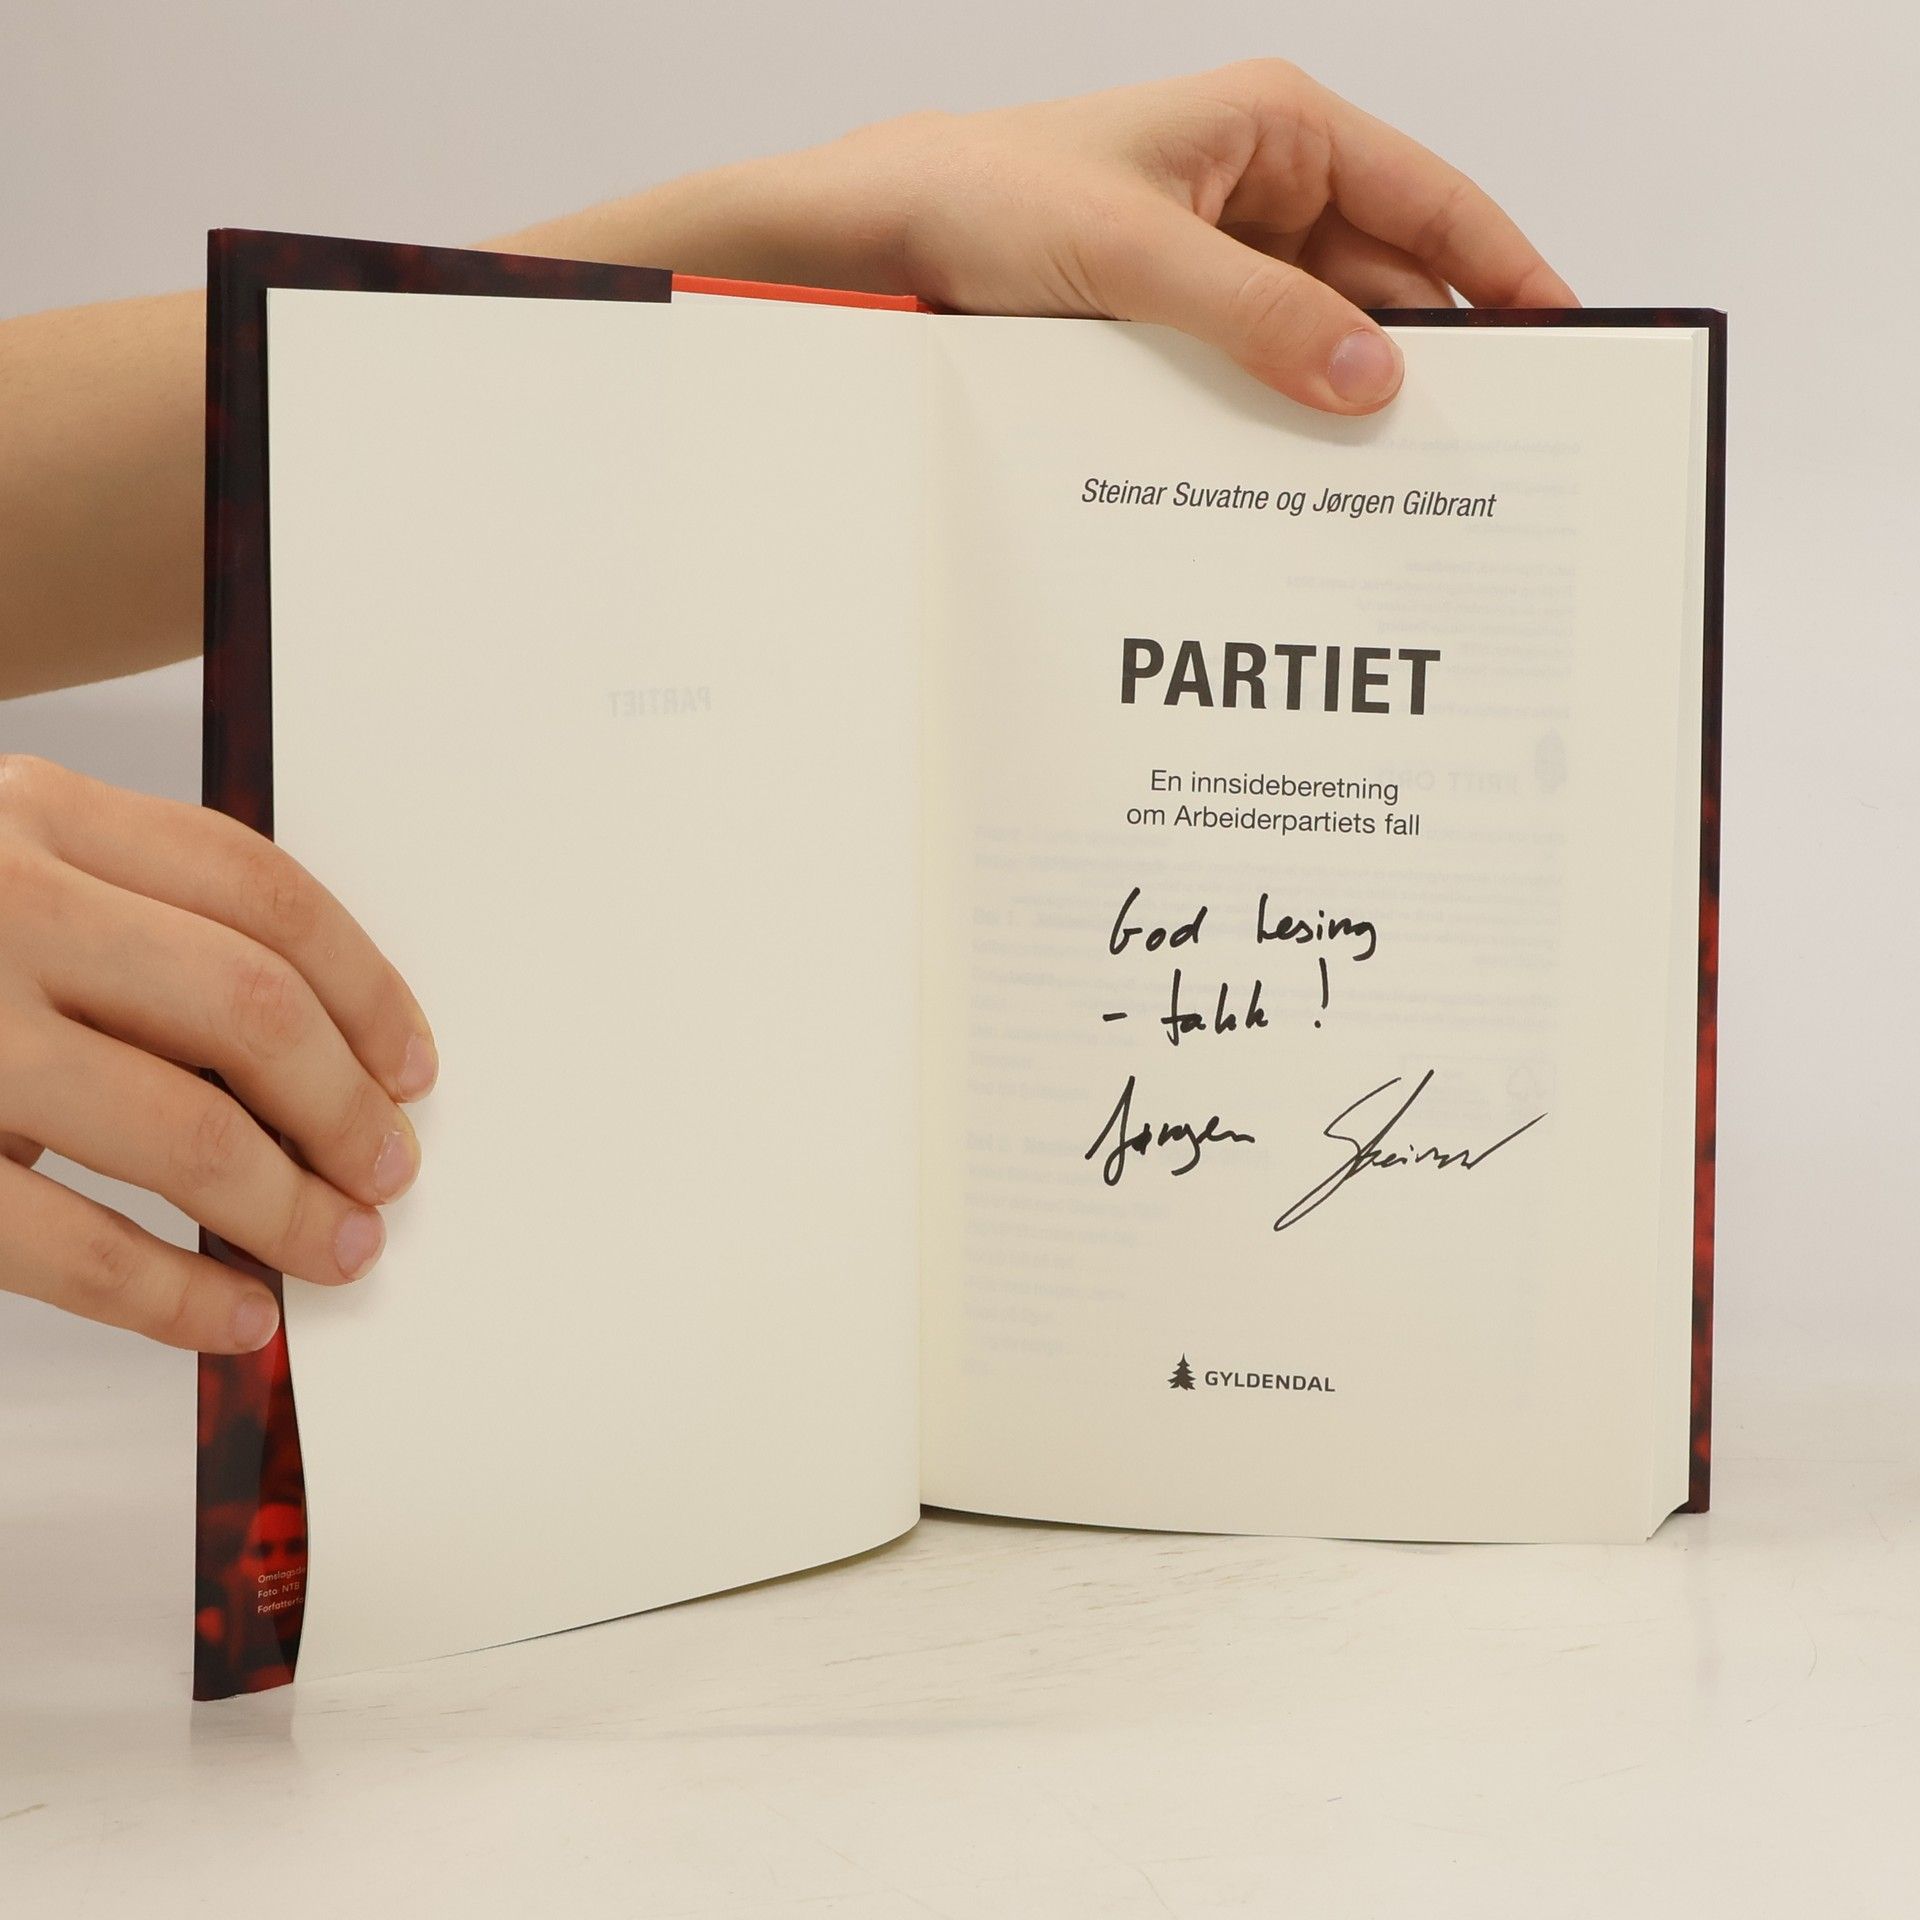 Steinar Suvatne og Jørgen Gilbrant
PARTIET
En innsideberetning
om Arbeiderpartiets fall
God Lesing
- takk !
Jørgen Steinar
GYLDENDAL
PARTIET
Omslagsde
Foto NTB
Forfatterfo